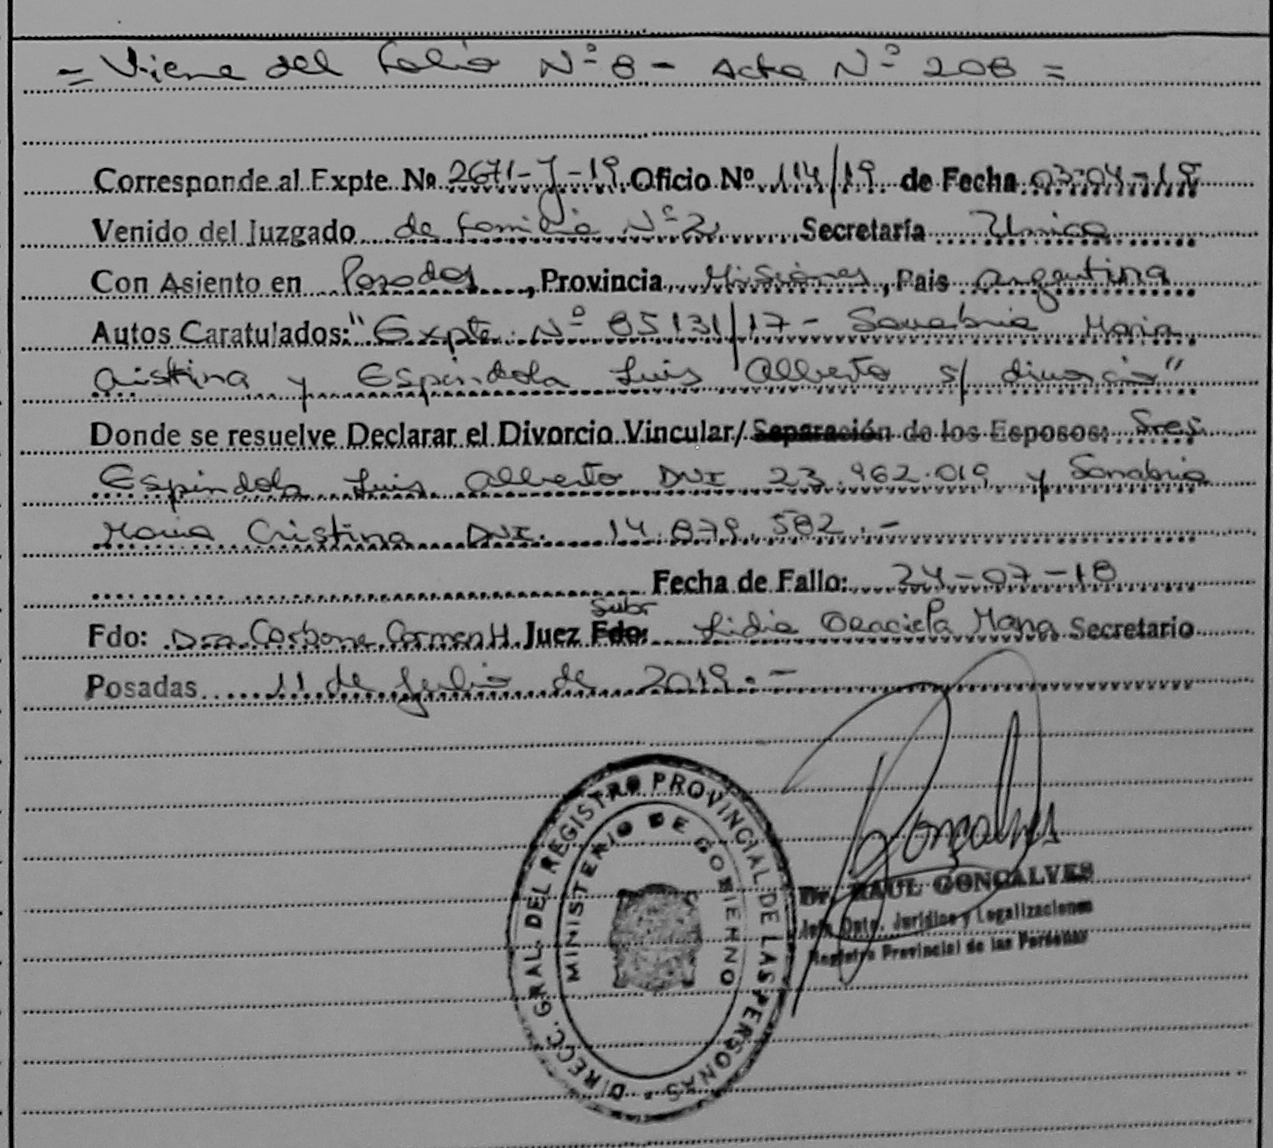 = Viene del Folio Nº 8 - Acta Nº 208 =
Corresponde al Expte. Nº 2671-J-19 Oficio Nº 114/19 de Fecha 03-04-19
Venido del Juzgado de Familia Nº 2 Secretaría Unica
Con Asiento en Posadas, Provincia Misiones, Pais Argentina
Autos Caratulados: "Expte. Nº 85131/17 - Sanabria Maria
Cristina y Espindola Luis Alberto s/ divorcio"
Donde se resuelve Declarar el Divorcio Vincular/Separación de los Esposos: Sres.
Espindola Luis Alberto DNI 23.962.019 y Sanabria
Maria Cristina DNI. 14.879.582.-
Fecha de Fallo: 24-07-18
Subr
Fdo: Dra. Carbone Carmen H. Juez Fdo: Lidia Graciela Secretario
Posadas 11 de Julio de 2019.-
DIRECC. GRAL. DEL REGISTRO PROVINCIAL DE LAS PERSONAS
MINISTERIO DE GOBIERNO
Goncalves
Dr. RAUL GONÇALVES
Jefe Dpto. Jurídico y Legalizaciones
Registro Provincial de las Personas